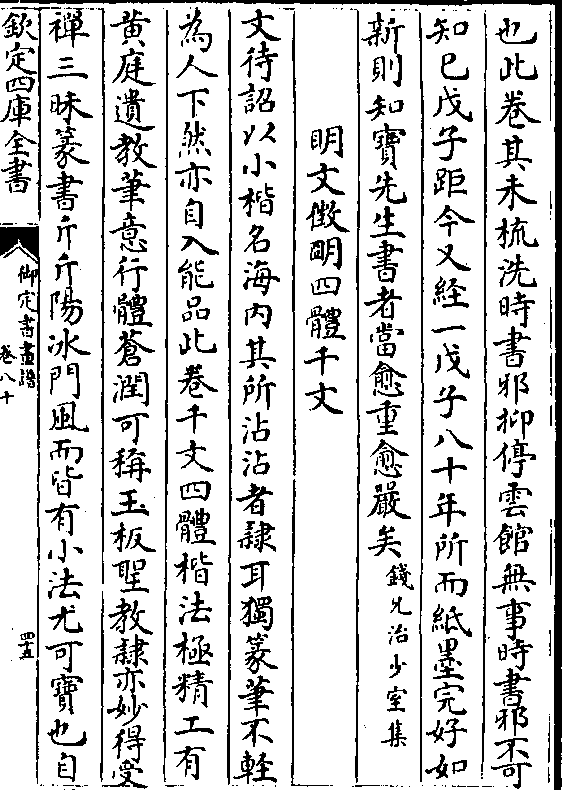 也此卷其未梳洗時書邪抑停雲館無事時書邪不可
知已戊子距今又経一戊子八十年所而紙墨完好如
新則知寶先生書者當愈重愈嚴矣錢允治少室集
明文徵明四體千文
文待詔以小楷名海内其所沾沾者隷耳獨篆筆不輕
為人下然亦自入能品此卷千文四體楷法極精工有
黄庭遺教筆意行體蒼潤可稱玉板聖教隷亦妙得受
禪三昧篆書斤斤陽冰門風而皆有小法尤可寶也自
欽定四庫全書
御定書畫譜
卷八十
四五